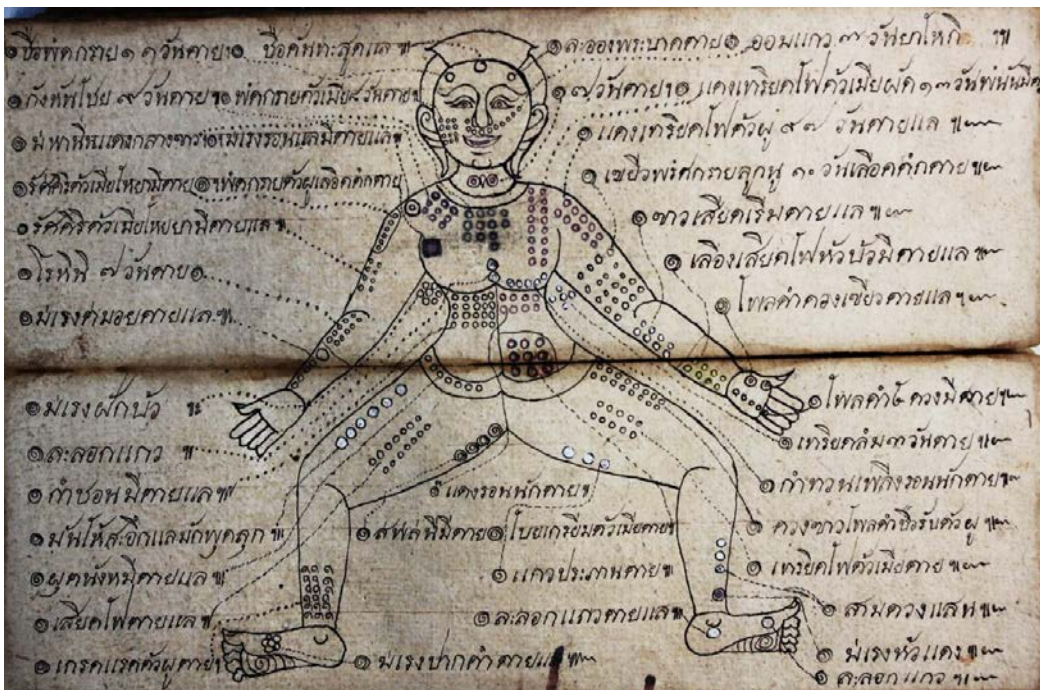 ๏ ชื่อพศกราย ๑ ๑ วันตาย ๏ ชื่อคันทะสูดแล ๚
๏ กังหันไชย ๙ วันตาย ๚ ๏ พศกรายตัวเมีย ๘ วันตาย ๚
๏ แดงกลาง มเรงรอนแลมิตายแล
๏ รัศคิรตัวเมียไหยามิตาย ๏ พศกรายตัวผูเลือดตกตาย
๏ รัศคิรตัวเมียเหยยามิตายแล ๚
๏ โรหินิ ๗ วันตาย ๏
๏ มเรงคำมอยตายแล ๚
๏ มเรงฝักบัว ๚ะ
๏ ละลอกแกว ๚
๏ กำชอนมิตายแล ๚
๏ มันไห้สะอึกแลมักพูดลุก ๚
๏ ผุดหนังหมิตายแล ๚
๏ เสี้ยดไฟตายแล ๚
๏ เกรดแรดตัวผูตาย ๚
๏ ละอองพระบาดตาย ๏ ออมแกว ๗ วันยาไหกิ ๚
๏ ๗ วันตาย ๚ ๏ แดงเทริยดไฟตัวเมียผัด ๑๓ วัน
๏ แดงเทริยดไฟตัวผู ๙๗ วันตายแล ๚
๏ เขยีวพรัศกรายลูกหนู ๑๐ วันเลือดตกตาย ๚
๏ ขาวเสี้ยดเริมตายแล ๚
๏ เลืองเสี้ยดไฟหัวบัวมิตายแล ๚
๏ ไพลดำดวงเขยีวตายแล ๚
๏ ไพลดำ ๖ ดวงมิตาย ๚
๏ เทริยดลม ๓ วันตาย ๚
๏ กำทวนเพลิงรอนนักตาย ๚
๏ ดวงขาวไพลดำชื่อรับตัวผู
๏ เทริยดไฟตัวเมียตาย ๚
๏ สามดวงแสห ๚
๏ มเรงหัวแดง ๚
๏ ละลอกแกว ๚
๏ แดงรอนนักตาย ๚
มิตาย ๏ ไบยเกรียมตัวเมียตาย ๚
๏ แกวประภานตาย ๚
๏ ละลอกแกวตายแล ๚
๏ มเรงปากดำตายแล ๚